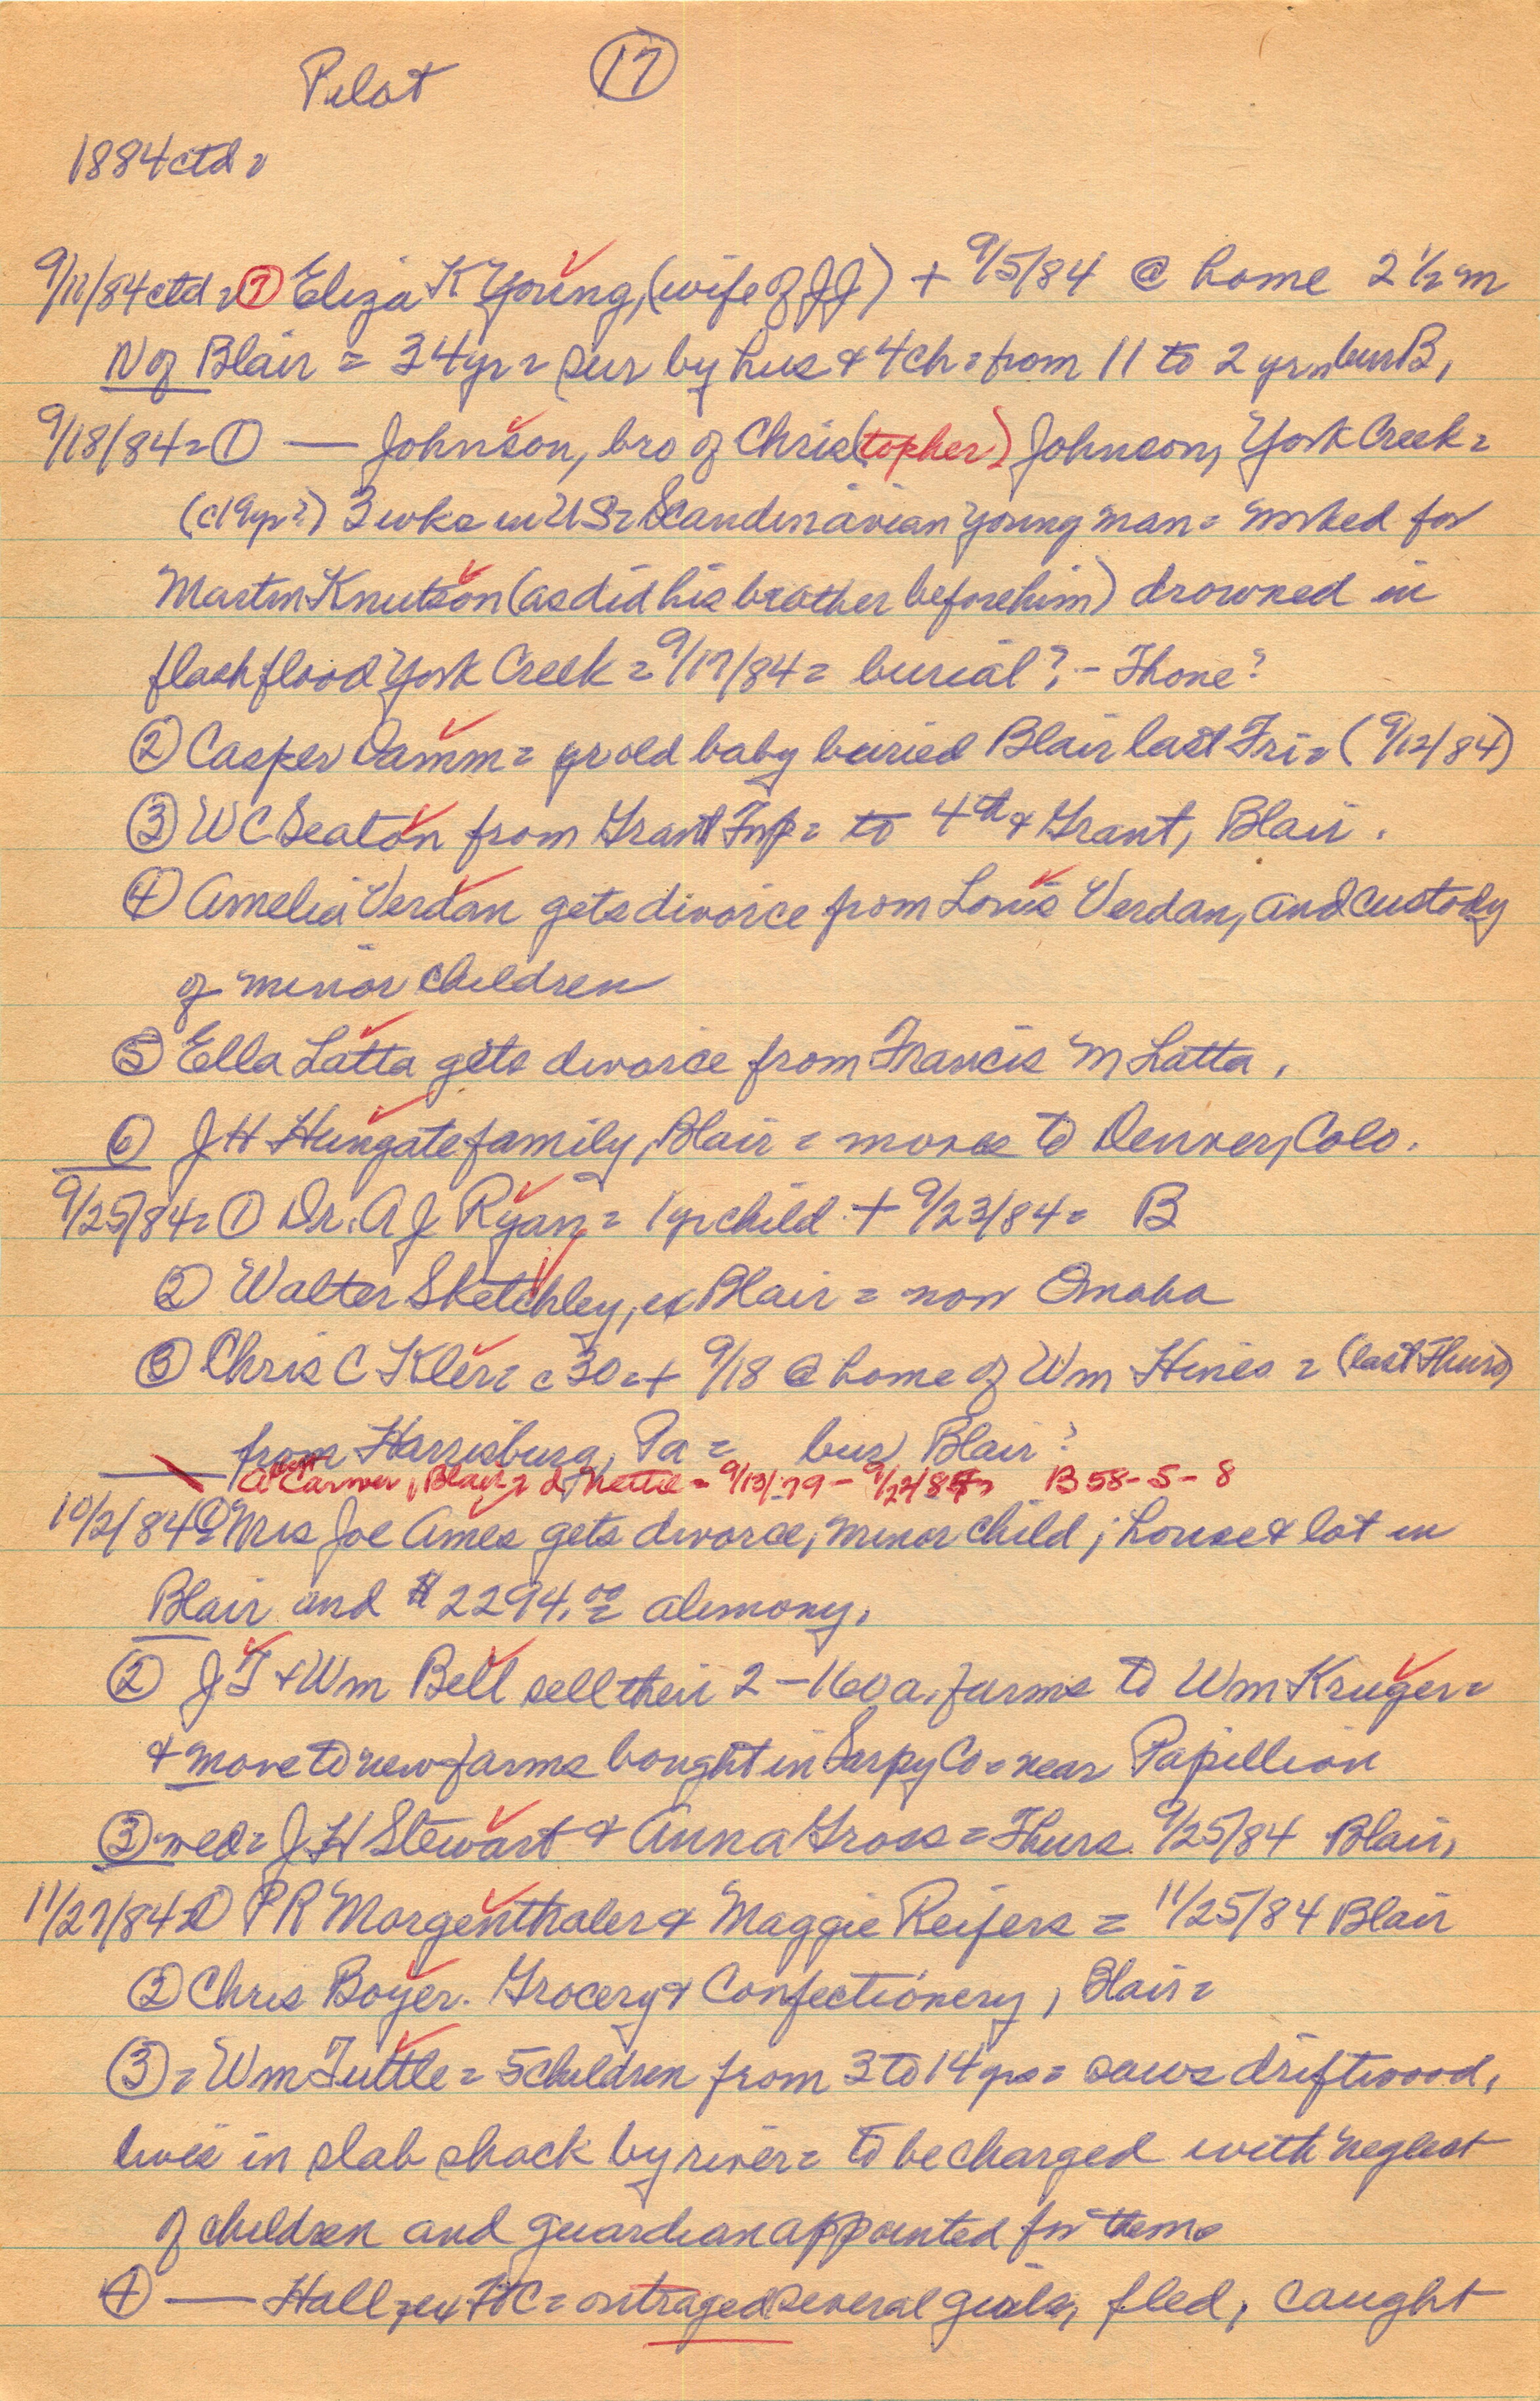 Pilot 17
1884 ctd =
9/11/84 ctd = 7 Eliza K Young, (wife of JJ) + 9/5/84 @ home 2 1/2 m
N of Blair = 34yr = sur by hus & 4 ch = from 11 to 2 yr = bur B,
9/18/84 = 1 — Johnson, bro of Chris(topher) Johnson, York Creek =
(c19yr?) 3 wks in US = Scandinavian young man = worked for
Martin Knutson (as did his brother before him) drowned in
flash flood York Creek = 9/17/84 = burial? - Thone?
2 Casper Damm = yr old baby buried Blair last Fri = (9/12/84)
3 W C Seaton from Grant Twp = to 4th & Grant, Blair.
4 Amelia Verdan gets divorce from Louis Verdan, and custody
of minor children
5 Ella Latta gets divorce from Francis M Latta.
6 J H Hungate family, Blair = moves to Denver, Colo.
9/25/84 = 1 Dr. A J Ryan = 1 yr child + 9/23/84 = B
2 Walter Sketchley, ex Blair = now Omaha
3 Chris C Kler = c 30 = + 9/18 @ home of Wm Hines = (last Thurs)
from Harrisburg, Pa = bur Blair?
Carver, Blair = d Nettie = 9/13/79 - B 58-5-8
10/2/84 1 = Mrs Joe Ames gets divorce, minor child; house & lot in
Blair and $2294.00 alimony.
2 J T & Wm Bell sell their 2 - 160 a. farms to Wm Kruger =
& move to new farms bought in Sarpy Co = near Papillion
3 wed = J H Stewart & Anna Gross = Thurs. 9/25/84 Blair,
11/27/84 = 1 P R Morgenthaler & Maggie Reifers = 11/25/84 Blair
2 Chris Boyer. Grocery & Confectionery, Blair =
3 = Wm Tuttle = 5 children from 3 to 14 yrs = saws driftwood,
lives in slab shack by river = to be charged with neglect
of children and guardian appointed for them.
4 — Hall = ex FtC = outraged several girls, fled, caught